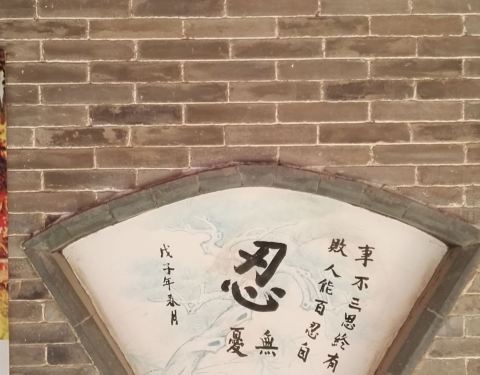 事不三思終有
敗人能百忍自
無憂
忍
戊子年春月